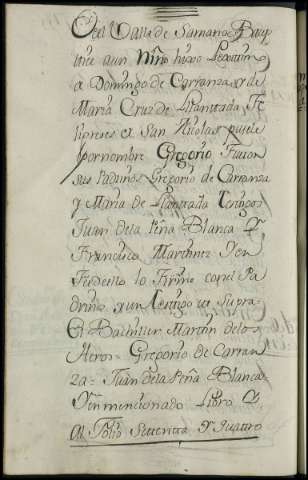 Del Valle de Samano Baup
tice a un Niño hixo Lexitimo
a Domingo de Carranza y de
Maria Cruz de Llanttada Fe
ligreses a San Nicolas pusele
por nombre Gregorio Fueron
sus Padrinos Gregorio de Carranza
y Maria de Llantada testigos
Juan de la Peña Blanca Y
Francisco Marttinez Y en
Fee de ello lo Firmo con el Pa
drino y un testigo ut supra=
El Bachiller Martin de los
Heros= Gregorio de Carran
za= Juan de la Peña Blanca
Y en mencionado Libro Y
al Folio Settentta Y quattro